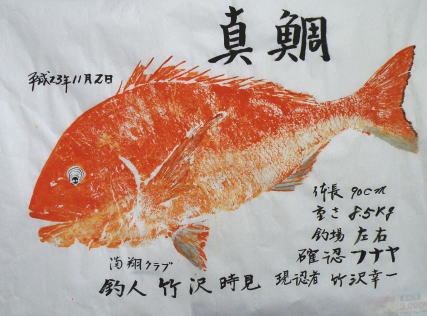 真鯛
平成23年11月2日
体長 90cm
重さ 8.5Kg
釣場 左右
確認 フナヤ
海翔クラブ
釣人 竹沢時見 現認者 竹沢幸一